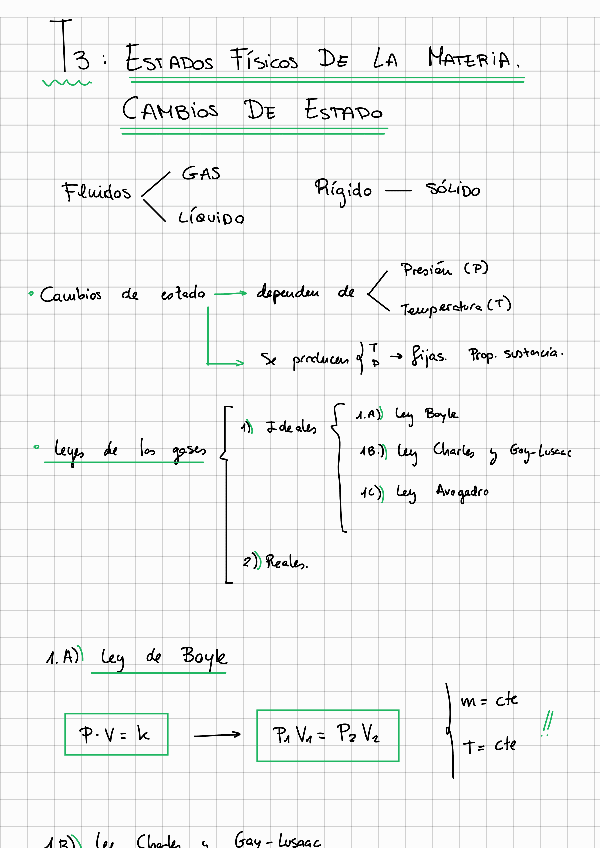 T3: ESTADOS FÍSICOS DE LA MATERIA.
CAMBIOS DE ESTADO
Fluidos GAS
LÍQUIDO
Rígido — SÓLIDO
• Cambios de estado → dependen de Presión (P)
Temperatura (T)
Se producen { T P → fijas. Prop. sustancia.
• Leyes de los gases
1) Ideales
1.A) Ley Boyle
1B.) Ley Charles y Gay-Lusaac
1C) Ley Avogadro
2) Reales.
1.A) Ley de Boyle
P·V = k → P1 V1 = P2 V2
m = cte
T = cte !!
1.B) Ley Charles y Gay-Lusaac